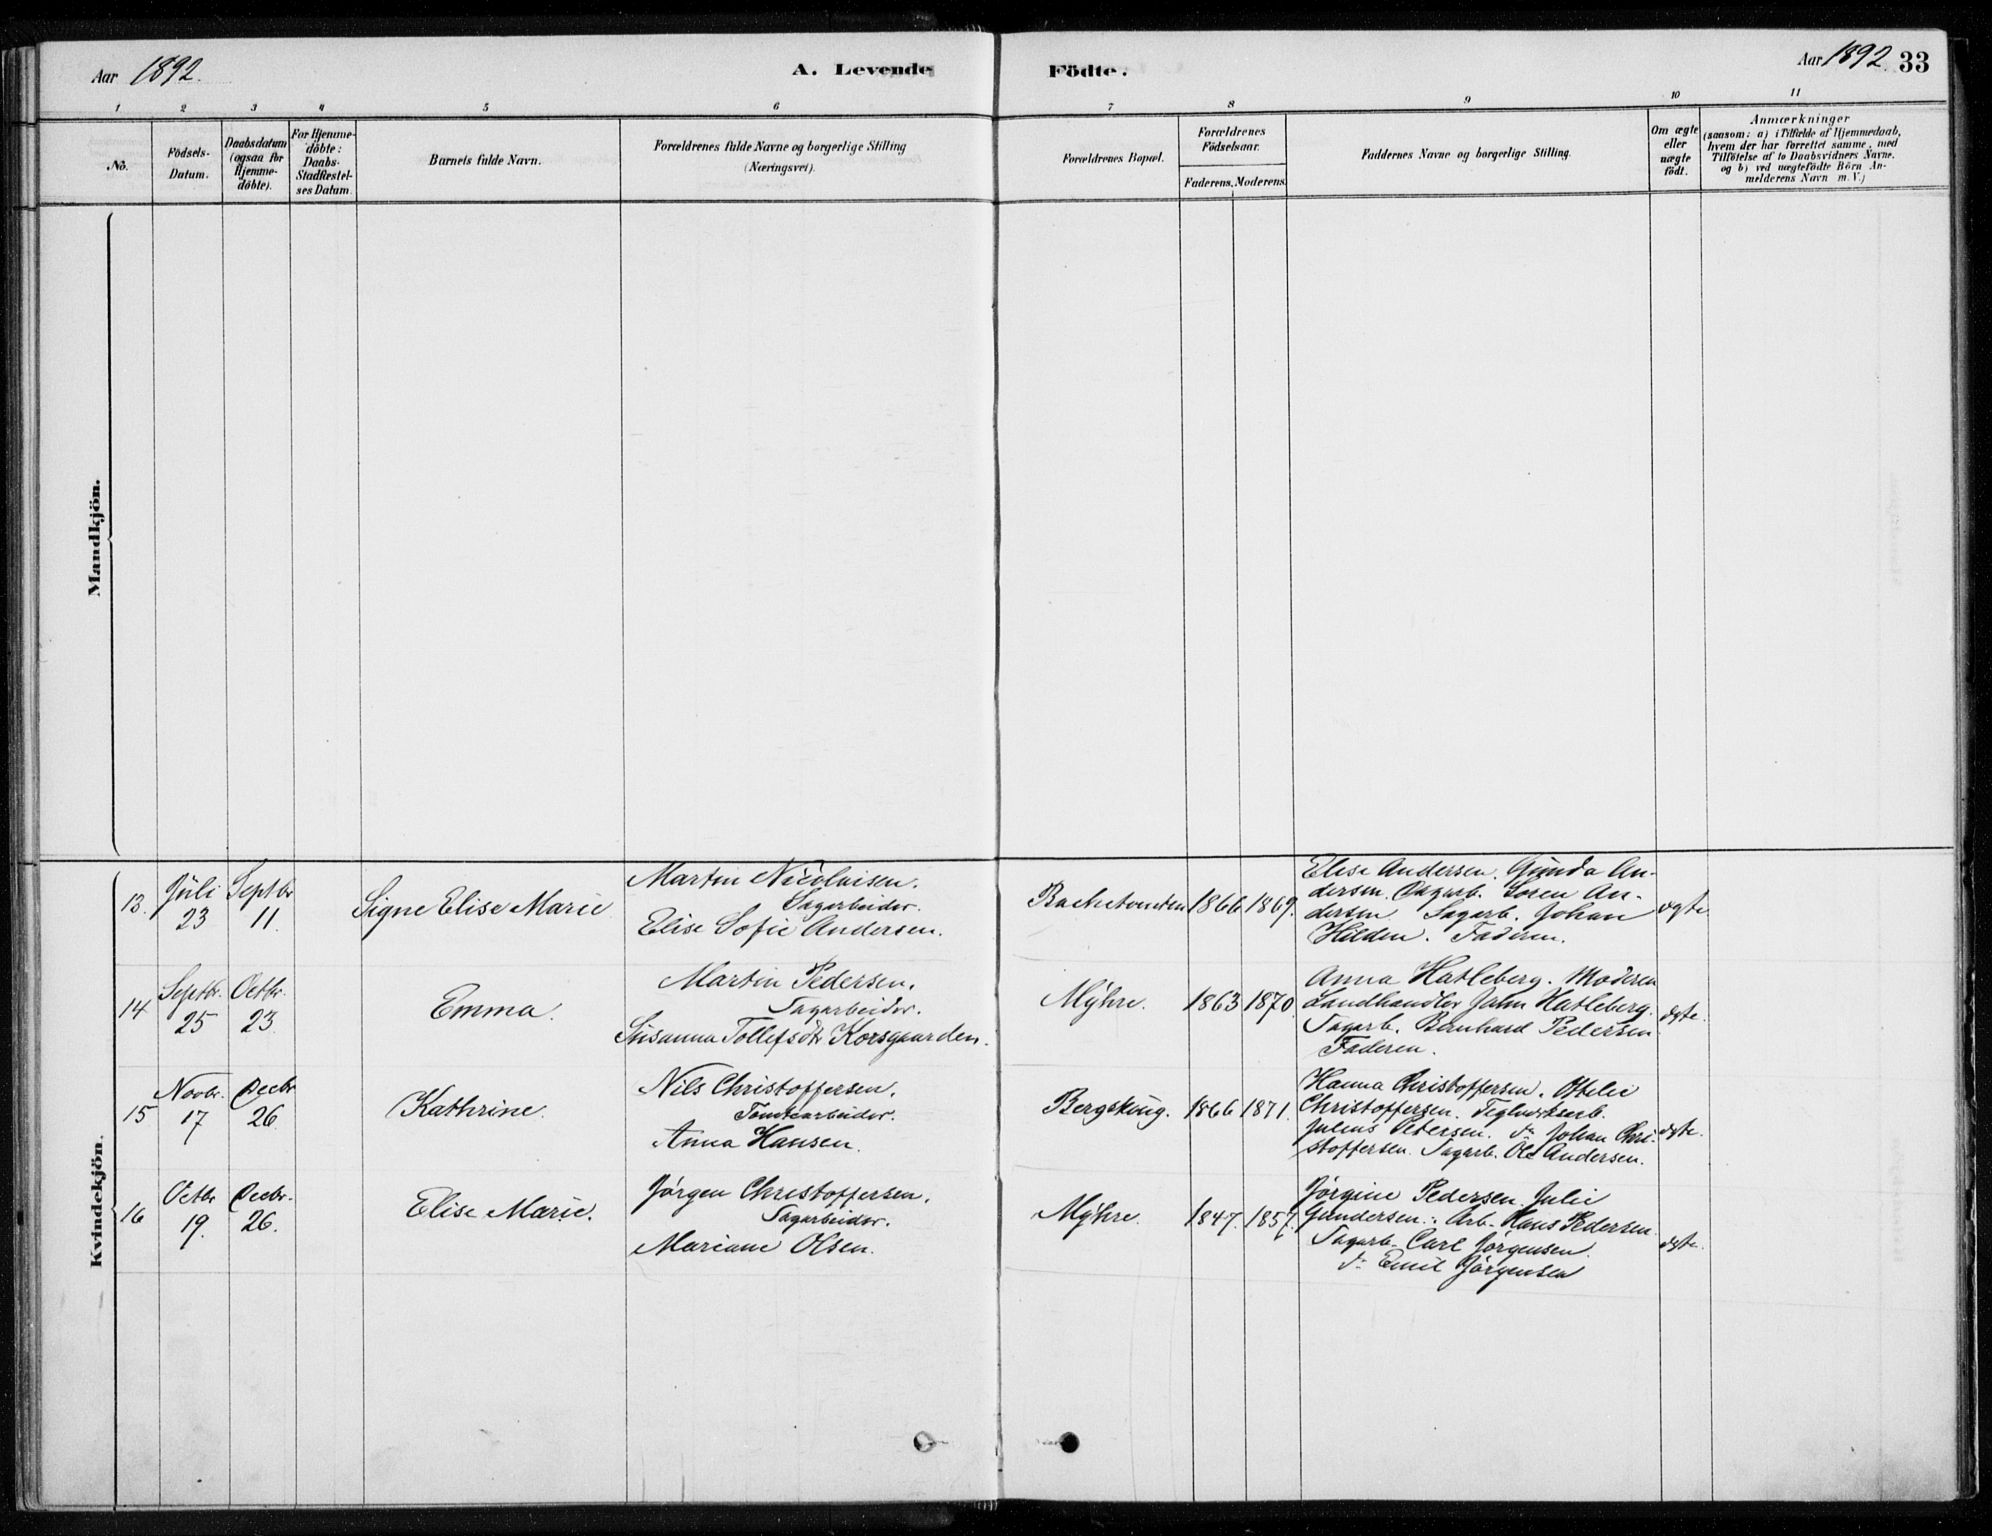 Aar 1892.
A. Levende Födte.
Aar 1892. 33
1 2 3 4 5 6 7 8 9 10 11
No.
Födsels-
Datum.
Daabsdatum
(ogsaa for
Hjemme-
döbte).
For Hjemme-
döbte:
Daabs-
Stadfæstel-
ses Datum.
Barnets fulde Navn.
Forældrenes fulde Navne og borgerlige Stilling
(Næringsvei).
Forældrenes Bopæl.
Forældrenes
Födselsaar.
Faderens. Moderens.
Faddernes Navne og borgerlige Stilling.
Om ægte
eller
uægte
født.
Anmærkninger
(saasom: a) i Tilfælde af Hjemmedaab,
hvem der har forrettet samme, med
Tilföielse af to Daabsvidners Navne,
og b) ved uægtefödte Börn An-
melderens Navn m. V.)
Mandkjön.
Kvindekjön.
13.
Juli
23
Septbr
11.
Signe Elise Marie
Martin Nicolaisen.
Sagarbeider.
Elise Sofie Andersen.
1866 1869.
Elise Andersen. Gunda An-
dersen. Søren An-
dersen Sagarb. Johan
Hilden. Faderen.
ægte
14
Septbr.
25
Octbr.
23.
Emma.
Martin Pedersen.
Sagarbeider.
Susanna Tollefsdtr Korsgaarden.
Myhre.
1863 1870
Anna Hatleberg. Moderen
Landhandler Jahn Hatleberg.
Sagarb. Bernhard Pedersen
Faderen.
ægte.
15
Novbr.
17
Decbr
26
Kathrine.
Nils Christoffersen.
Tomtearbeider.
Anna Hansen.
Bergskoug.
1866 1871.
Hanna Christoffersen. Othelie
Christoffersen. Teglverksarb.
Julius Petersen. do Johan Chri-
stoffersen. Sagarb. Ole Andersen.
ægte.
16
Octbr
19.
Decbr.
26.
Elise Marie.
Jörgen Christoffersen.
Sagarbeider.
Mariane Olsen.
Myhre.
1847. 1857.
Jørgine Pedersen. Julie
Gundersen. Arb. Hans Pedersen.
Sagarb. Carl Jörgensen.
do Emil Jörgensen
ægte.